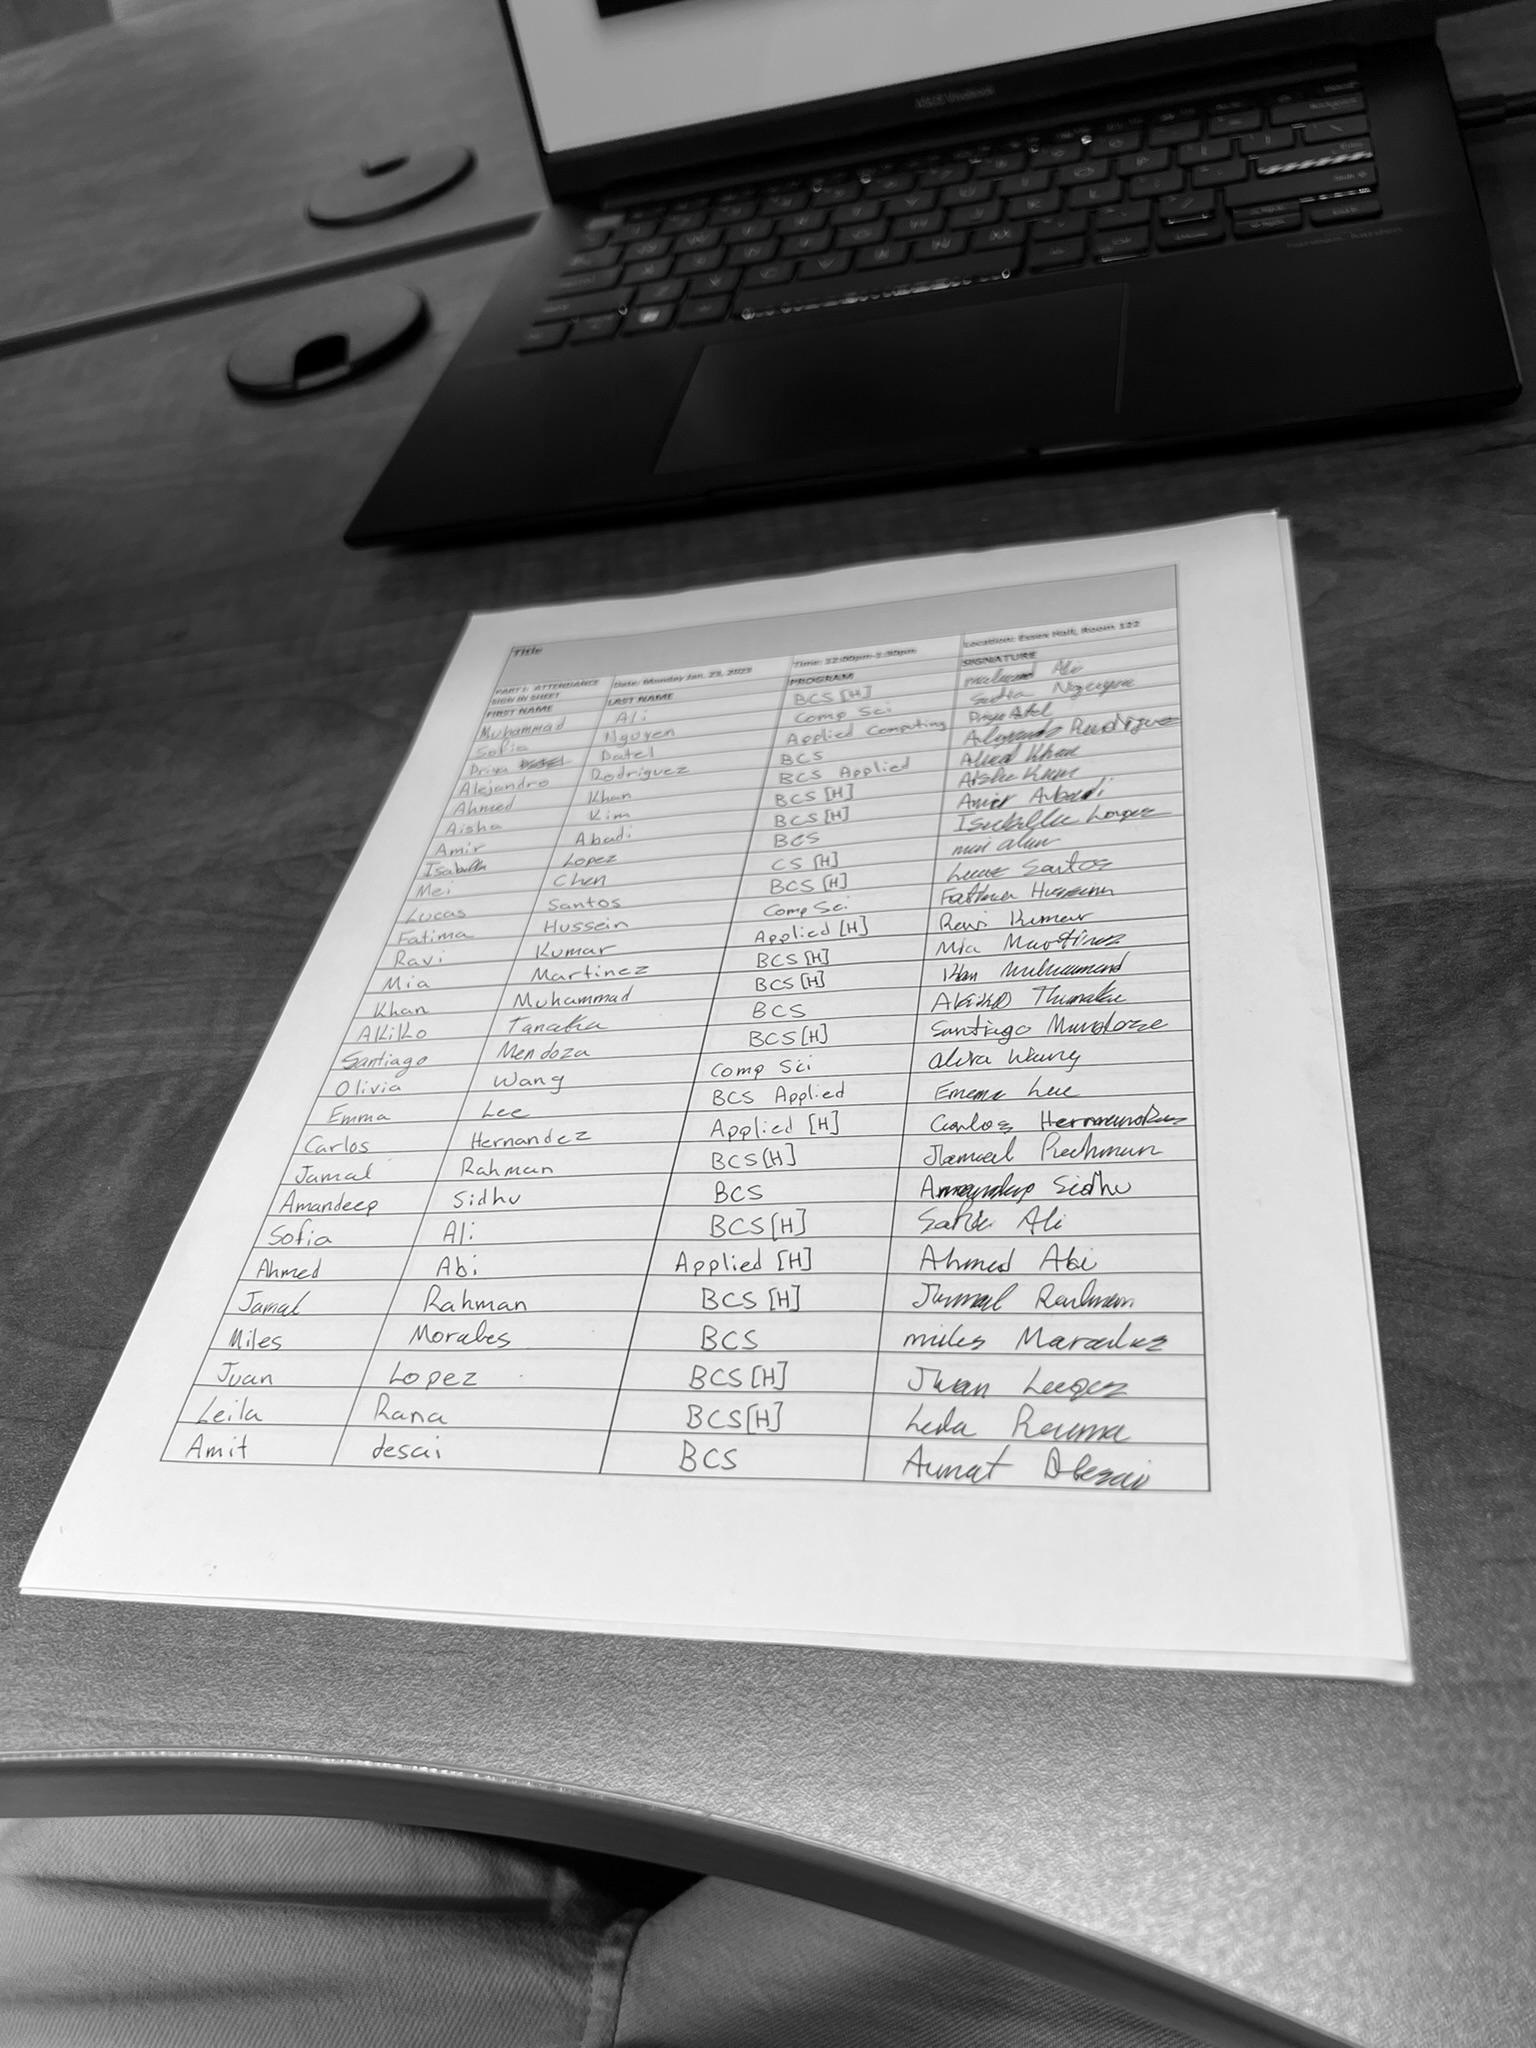 Title
PART I: ATTENDANCE SIGN IN SHEET Date: Monday Jan. 23, 2023 Time: 12:00pm-1:30pm Location: Essex Hall, Room 122
FIRST NAME LAST NAME PROGRAM SIGNATURE
Muhammad Ali BCS [H] Ali
Sofia Nguyen Comp Sci Nguyen
Priya Patel Applied Computing
Alejandro Rodriguez BCS Rodriguez
Ahmed Khan BCS Applied Ahmed Khan
Aisha Kim BCS [H] Aisha Kim
Amir Abadi BCS [H] Amir Abadi
Isabella Lopez BCS Isabella Lopez
Mei Chen CS [H]
Lucas Santos BCS [H] Lucas Santos
Fatima Hussein Comp Sci Fatima Hussein
Ravi Kumar Applied [H] Ravi Kumar
Mia Martinez BCS [H] Mia Martinez
Khan Muhammad BCS [H] Khan Muhammad
Akiko Tanaka BCS Akiko
Santiago Mendoza BCS [H] Santiago Mendoza
Olivia Wang Comp Sci Wang
Emma Lee BCS Applied Emma Lee
Carlos Hernandez Applied [H] Carlos Hernandez
Jamal Rahman BCS [H] Jamal Rahman
Amandeep Sidhu BCS Amandeep Sidhu
Sofia Ali BCS [H] Sofia Ali
Ahmed Abi Applied [H] Ahmed Abi
Jamal Rahman BCS [H] Jamal Rahman
Miles Morales BCS miles Morales
Juan Lopez BCS [H] Juan Lopez
Leila Rana BCS [H] Leila Rana
Amit desai BCS Amit Desai